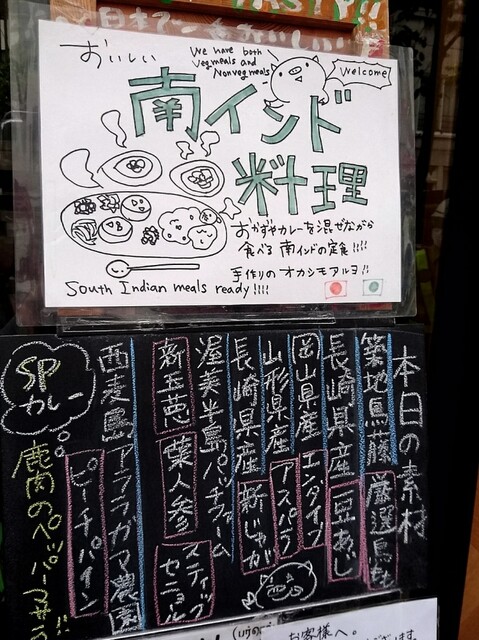 日本で一
おいしい
We have both
Veg meals and
Nonveg meals
Welcome
南インド
料理
おかずやカレーを混ぜながら
食べる 南インドの定食!!!!
手作りのオカシモアルヨ!!
South Indian meals ready!!!!
本日の素材
築地鳥藤 厳選鳥
長崎県産 豆あじ
岡山県産 エンダイブ
山形県産 アスパラ
長崎県産 新じゃが
渥美半島パッチファーム
スティックセニョール
新玉葱 葉人参
西表島アララガマ農園
ピーチパイン
SP
カレー
鹿肉のペッパーマサラ!!
お客様へ。